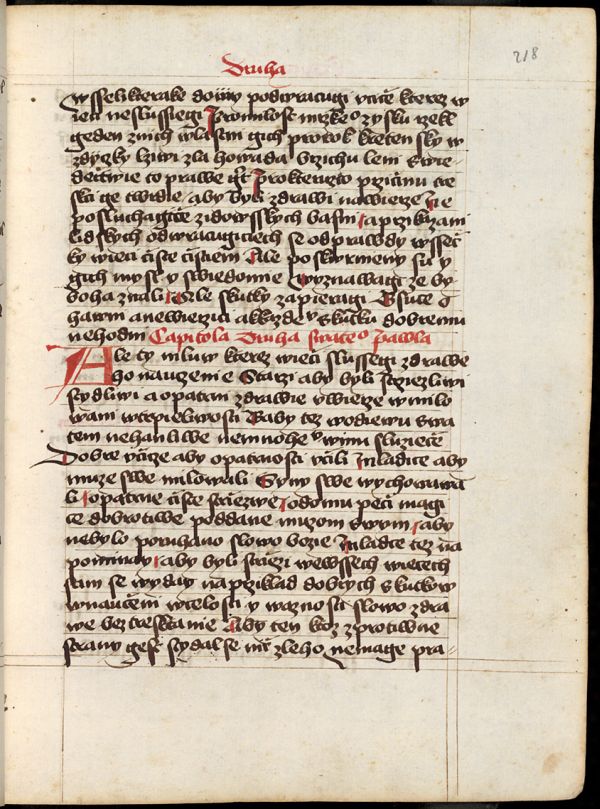 Druha
218
wsselikterake domy podwracugi vcice kterez w
ieci neslussiegi Pro milost mrzkeo zysku rzekl
geden z nich wlastni gich prorok kretensky w
zdyczky lziwi zla howada brzichu leni Swie
dectwie to prawe gt Pro kteruzto przicinu tre
skci ge twrdie aby byli zdrawi na wierze Ne
posluchagice zidowsskych basni a przikazani
lidskych odwracugiciech se od prawdy wssec
ky wieci ciste cistem Ale poskwrneny su y
gich mysl y swiedomie wyznawagi ze by
boha znali Ale skutky zapieragi
hawni a newierzici a kazdemu skutku dobremu
nehodni Capitola Druha swateo pawla
Ale ty mluw kterez wieci slussegi zdrawe
ho nauczenie Starzi aby byli strziezliwi
stydliwi a opatrni zdrawie v wierze w milo
wani w trpieliwosti Baby tez w odiewu swa
tem nehanliwe ne mnoho vinu sluziece
Dobre vcice aby opatrnosti vcili Mladice aby
muze swe milowali Syny swe wychowawa
li opatrne ciste strziezwe o domu peci magi
ce dobrotiwe poddane muzom swym aby
nebylo poruhano slowo bozie Mladce tez na
pominay aby byli strziezi we wssech wiecech
sam se wyday na prziklad dobrych skutkow
w nauceni w celosti y waznosti slowo zdra
we bez treskanie Aby ten ktoz z protiwne
strany gest stydal se nic zleho nemage pra-